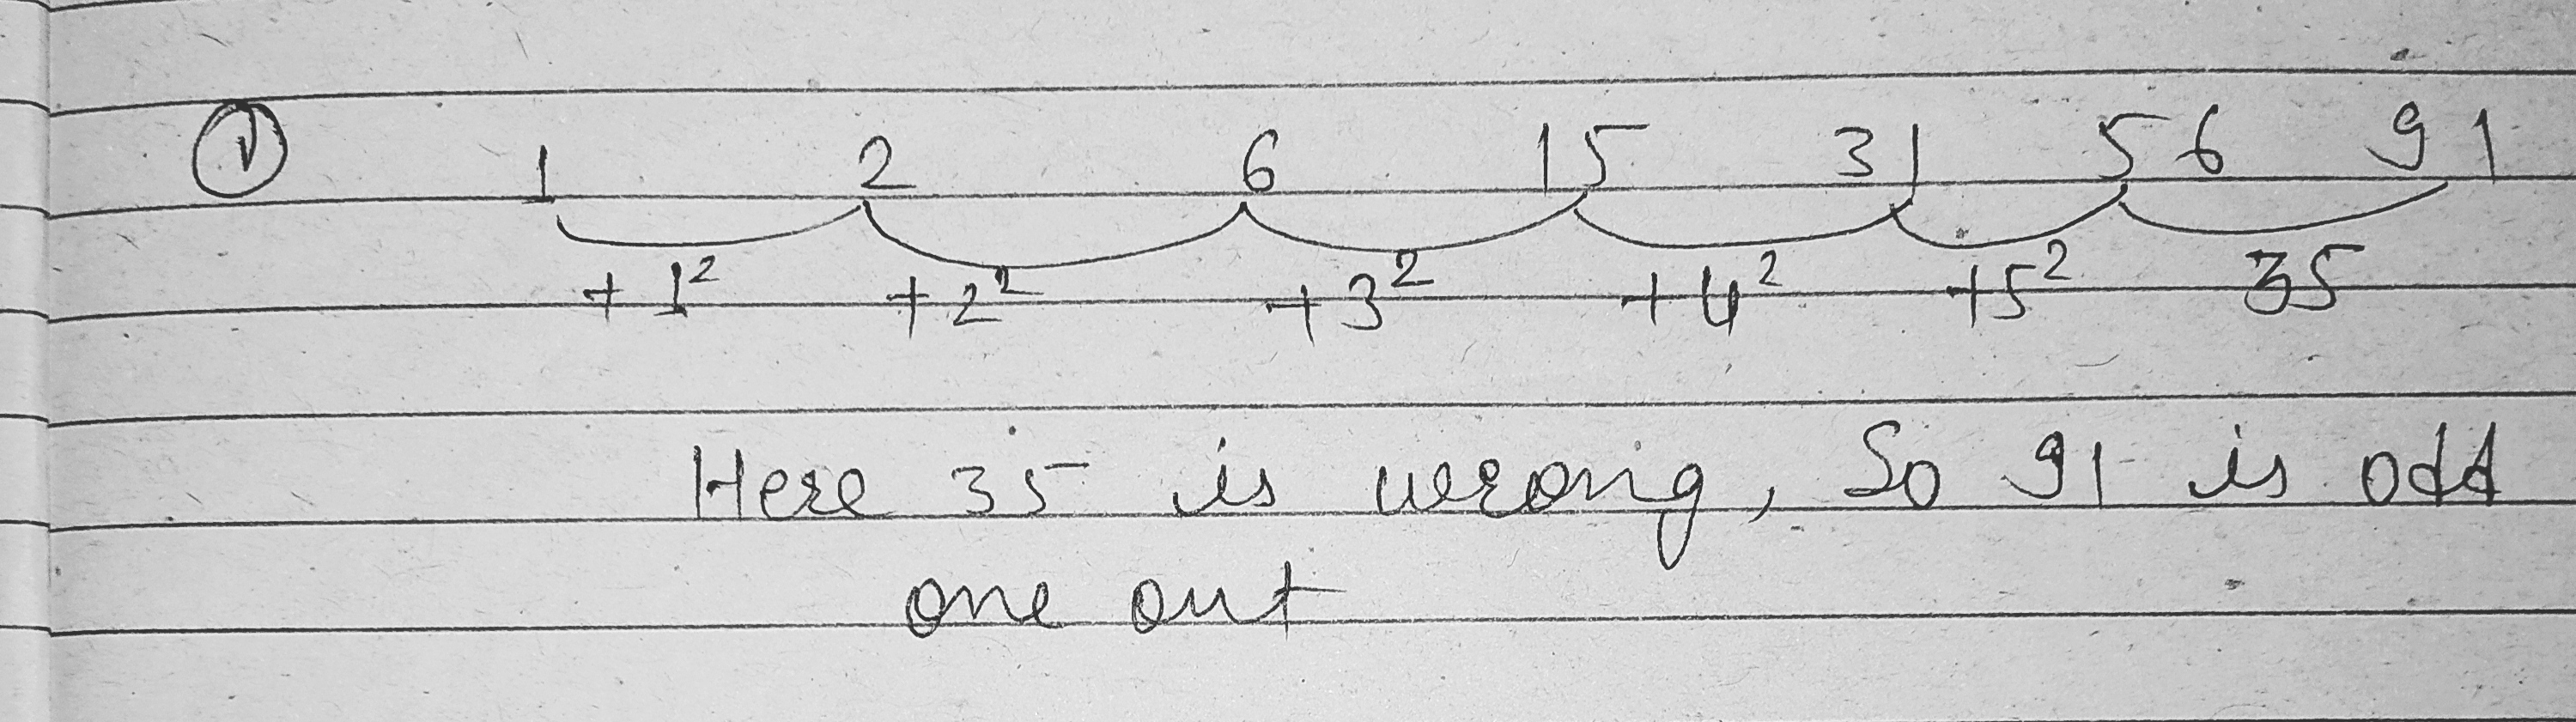 ① 1 2 6 15 31 56 91
+1² +2² +3² +4² +5² 35
Here 35 is wrong, So 91 is odd
one out